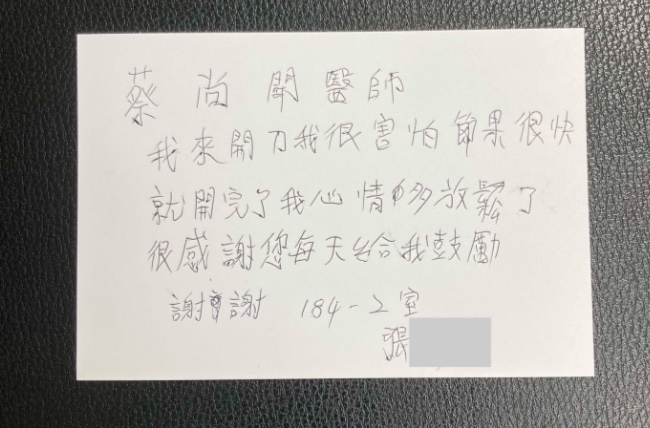 蔡尚聞醫師
我來開刀我很害怕節果很快
就開完了我心情多放鬆了
很感謝您每天給我鼓勵
謝謝 184-2室
張